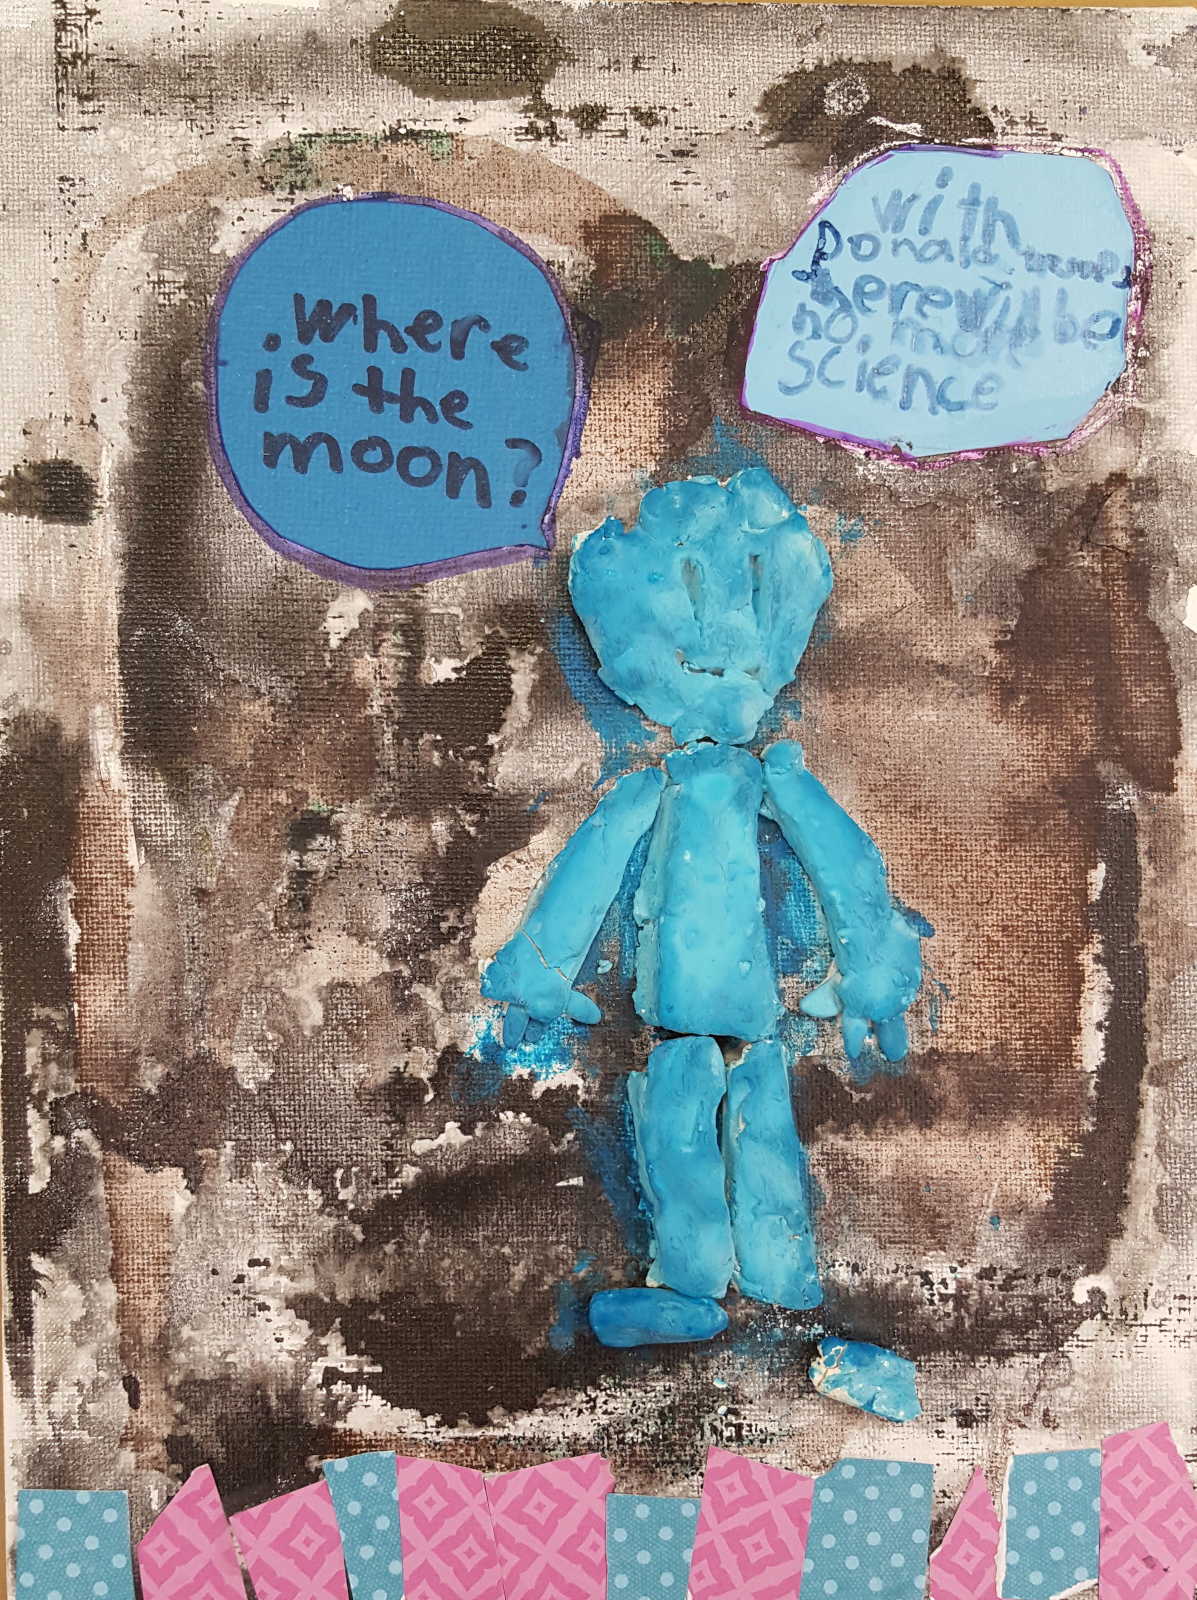 where
is the
moon?
with
Donald
there will be
no more
science